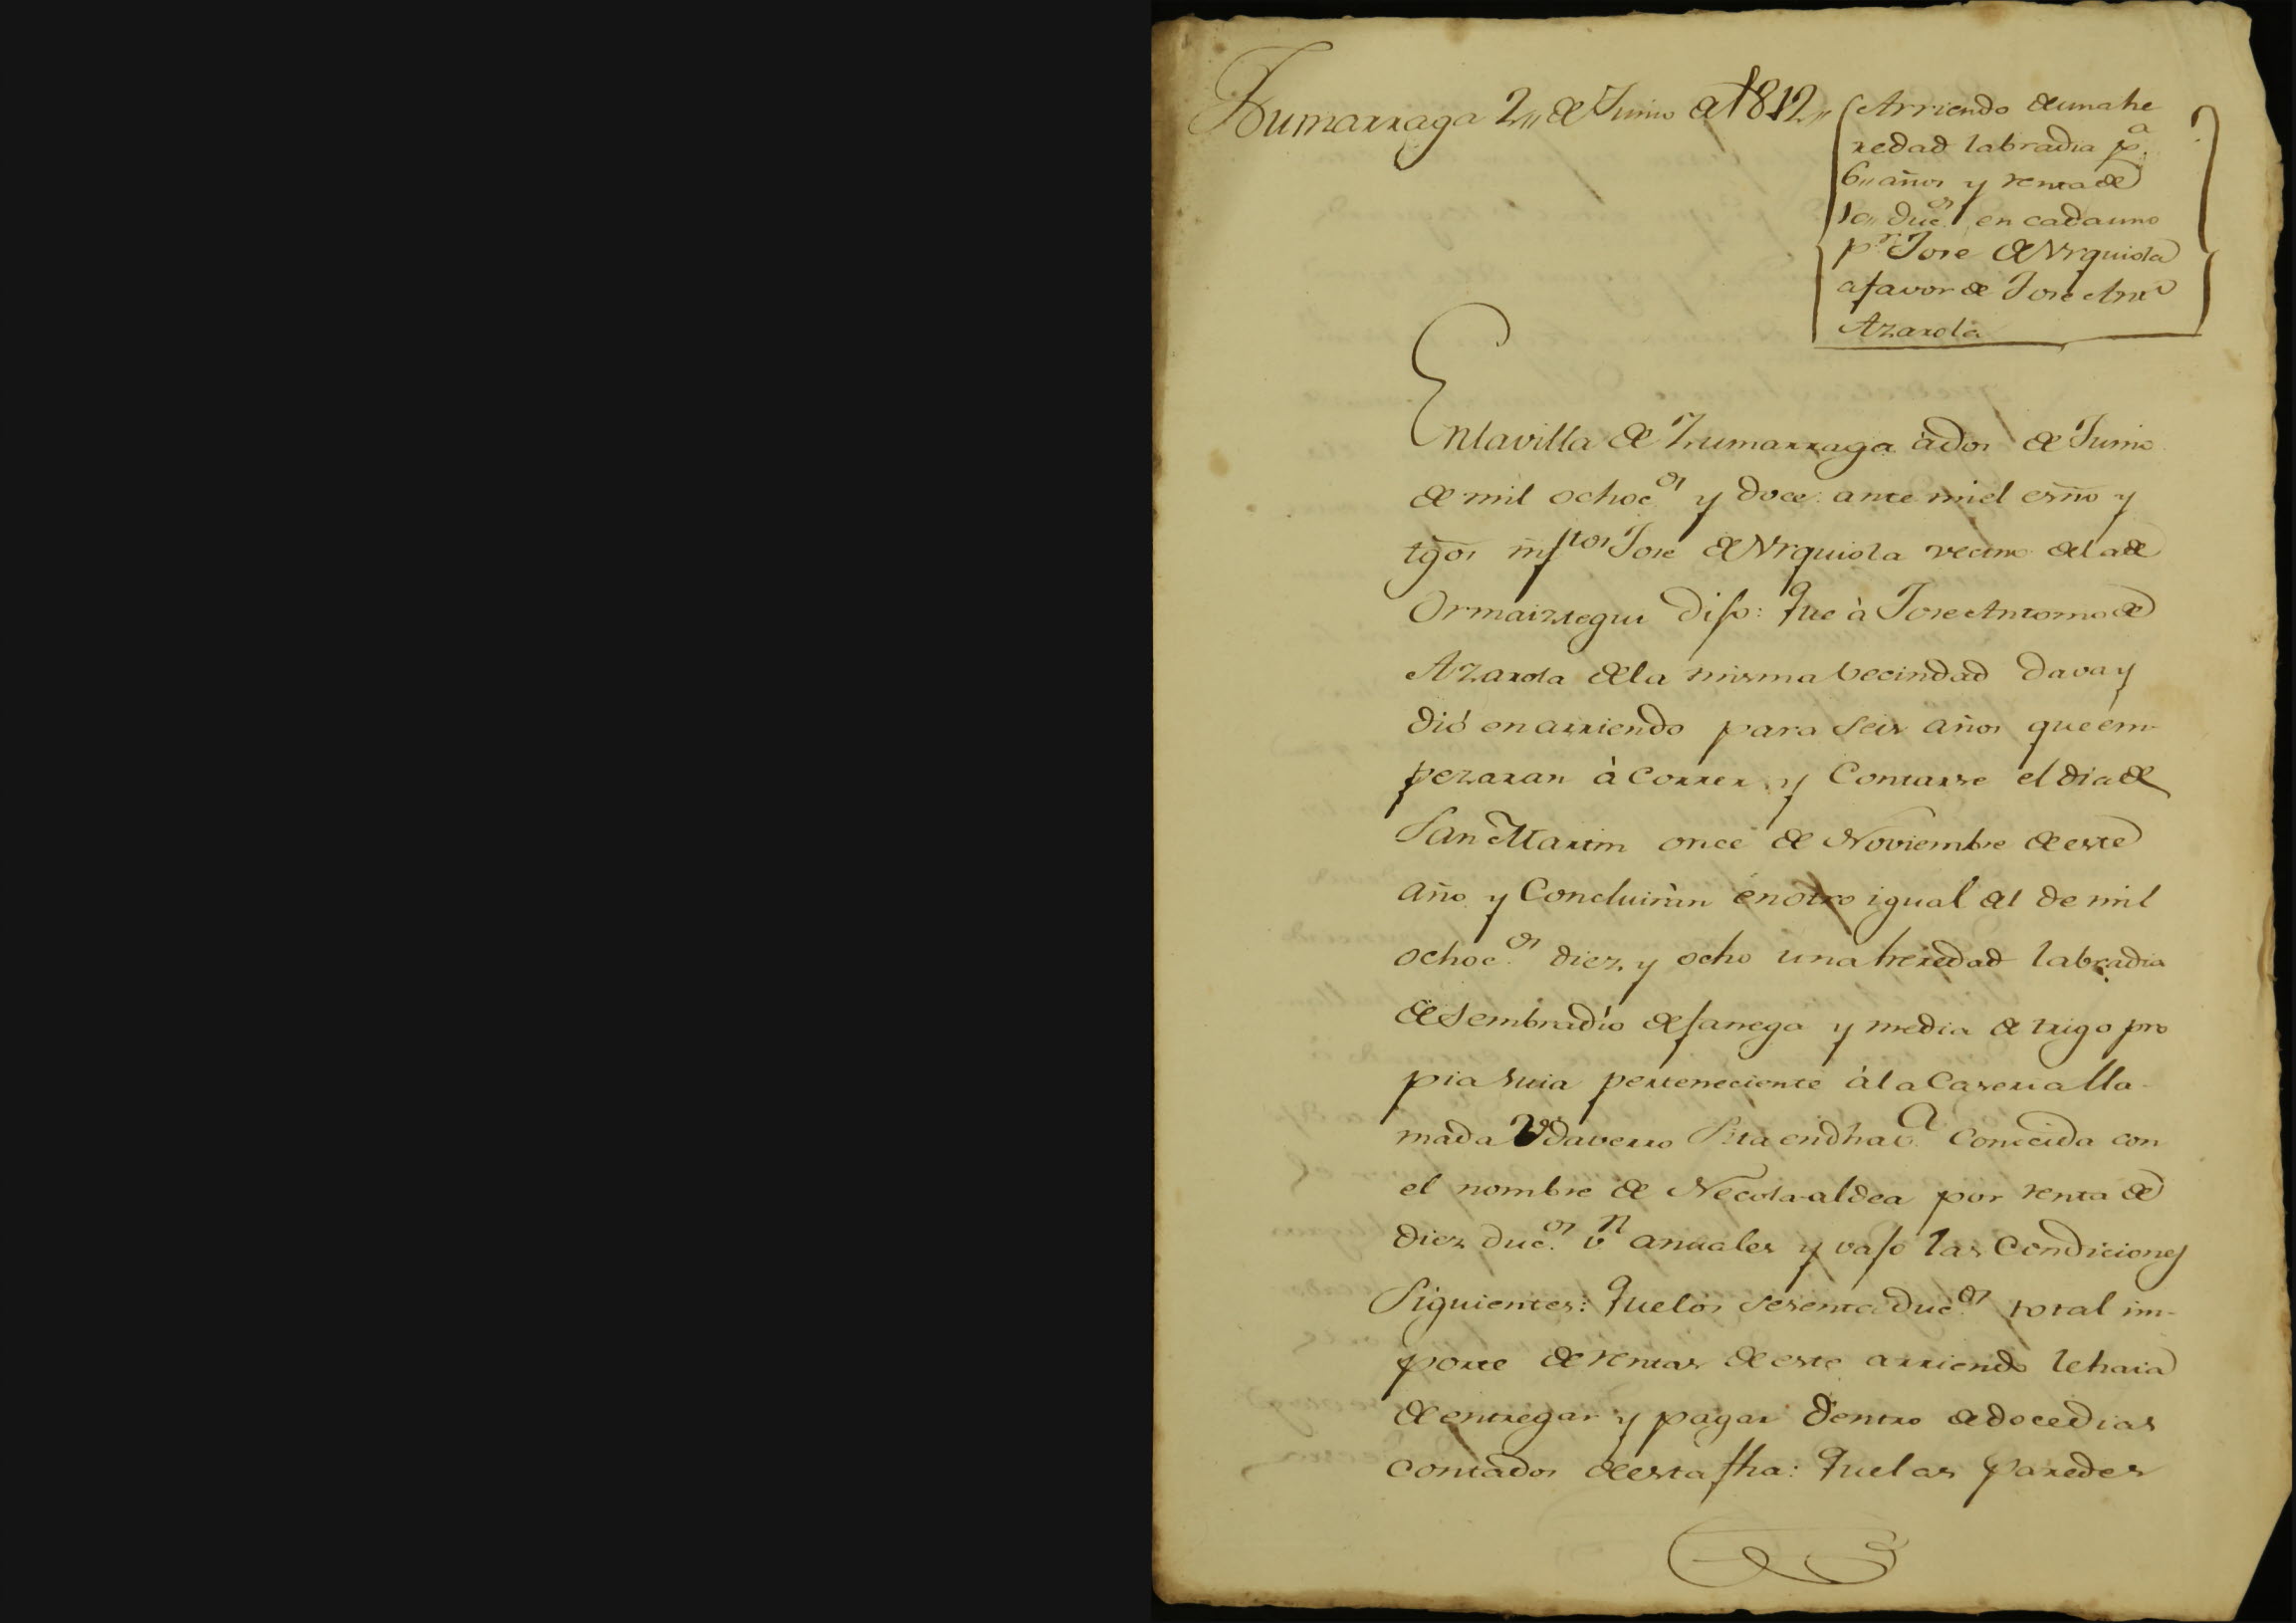 Zumarraga 2,, de Junio de 1812,,
Arriendo de una he
redad labradia p.ª
6,, años y renta de
10,, duc.os en cada uno
p.r Jose de Urquiola
a favor de Jose Ant.o
Azarola
En la villa de Zumarraga à dos de Junio
de mil ochoc.os y doce: ante mi el esñno y
tgõs infrtos Jose de Urquiola vecino de la de
Ormaiztegui dijo: Que à Jose Antonio de
Azarola de la misma becindad dava y
dió en arriendo para seis años que em-
pezaran à correr y Contarse el dia de
San Martin once de Noviembre de este
año y Concluiràn en otro igual del de mil
ochoc.os diez y ocho una heredad labradia
de sembradio de fanega y media de trigo pro
pia suia perteneciente à la Caseria lla-
mada Udaverro sita en dha v.ª Conocida con
el nombre de Necola-aldea por renta de
diez duc.os v.n anuales y vajo las Condiciones
siguientes: Que los sesenta duc.os total im-
porte de rentas de este arriendo le haia
de entregar y pagar dentro de doce dias
contados de esta fha: Que las paredes